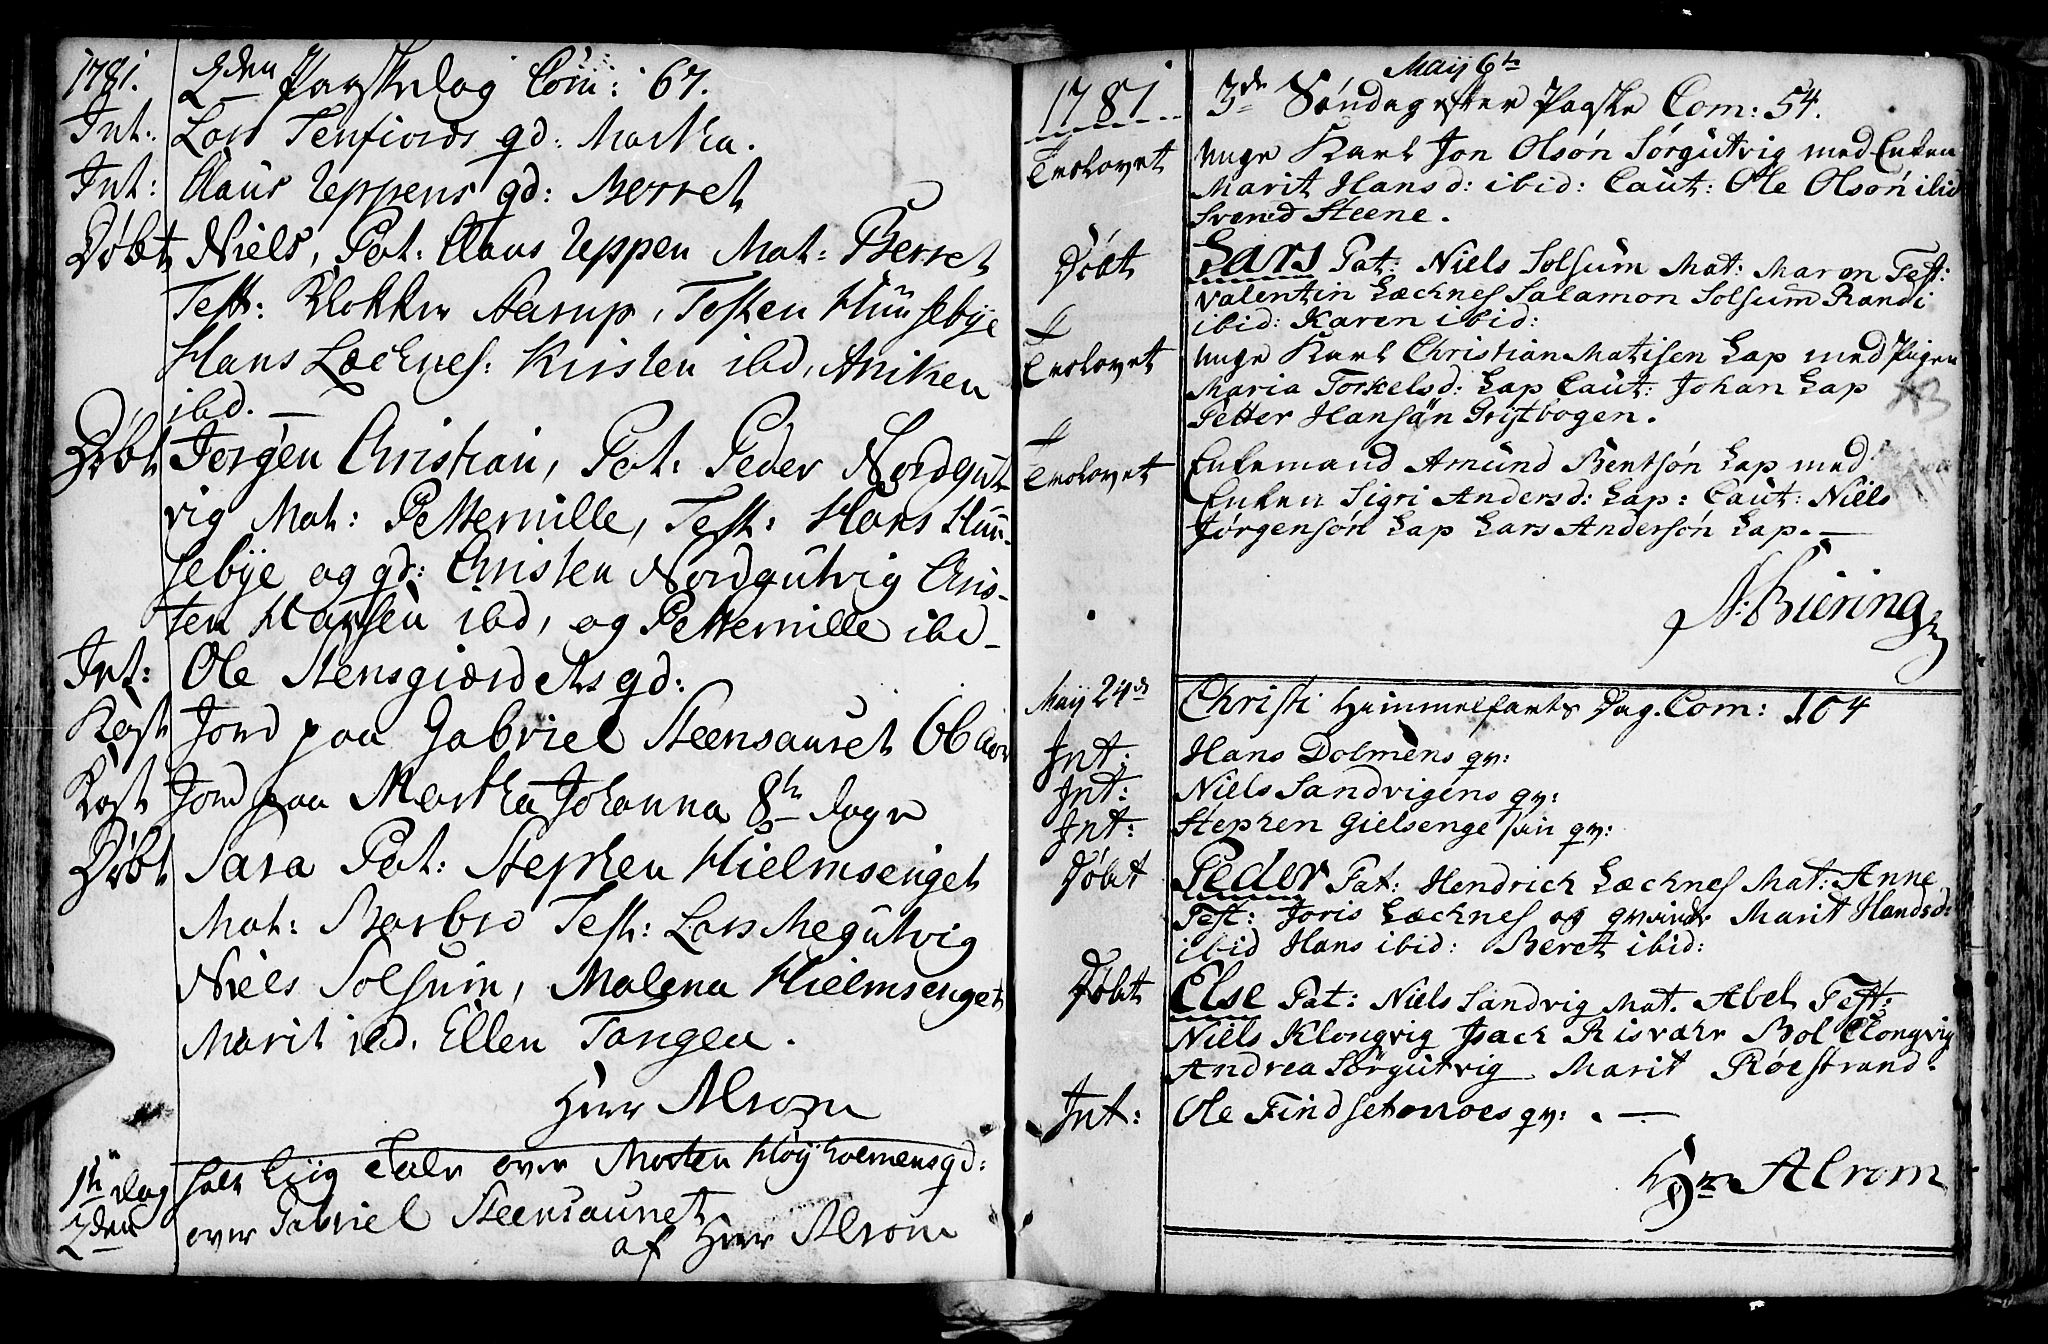 1781. 2den Paaskedag Com: 67.
Int: Lars Tenfiords qd: Martha.
Int: Claus Uppens qd: Berret
Døbt Niels, Pat: Claus Uppen Mat: Berret
Test: Klokker Aarup, Testen Huusebÿe
Hans Læcknes: Kirsten ibd, Aniken
ibd. —
Døbt Jørgen Christian, Pat: Peder Nordgut
vig Mat: Petternille, Test: Hans Huu-
sebÿe og qd: Christen Nordgutvig Chris-
ten Hansen ibd, og Petternille ibd-
Int: Ole Stensgiærdets qd:
Kast Jord paa Gabriel Steensauret 66 aar
Kast Jord paa Martha Johanna 8te dage
Døbt Sara Pat: Stephen Hielmsenget
Mat: Barbro Test: Lars Megutvig
Niels Solsum, Malena Hielmsenget
Marit ibd. Ellen Tangen.
Herr Alrom
dag holt Liig Tale over Morten Høÿholmens qd:
2den over Gabriel Steensaunet
af Herr Alrom
Maÿ 6te
1781 3de Søndag efter Paaske Com: 54.
Trolovet unge Karl Jon Olsøn Sørgutvig med Enken
Marit Hans d: ibid: Caut: Ole Olsøn ibid
Svend Steene.
Døbt Lars Pat: Niels Solsum Mat: Maren Test:
Valentin Læcknes Salamon Solsum Randi
ibid: Karen ibid:
Trolovet unge Karl Christian Matisen Lap med Pigen
Maria Torkelsd: Lap Caut: Johan Lap
Petter Hansøn
Trolovet Enkemand Amund Bentsøn Lap med
Enken Sigri Andersd: Lap: Caut: Niels
Jørgensøn Lap Lars Andersøn Lap. —
N: Buering
Maÿ 24de Christi Himmelfarts Dag. Com: 104
Int: Hans Dolmens qv:
Int: Niels Sandvigens qv:
Int: Stephen Gielsenge qv:
Døbt Peder Pat: Hendrich Læcknes Mat: Anne
Test: Joris Læcknes og qvinde Marit Handsd:
ibid Hans ibid: Beret ibid:
Døbt Else Pat: Niels Sandvig Mat. Abel Test:
Niels Klongvig Isach Risvær Bol Klongvig
Andrea Sørgutvig Marit Røestrand.
Int: Ole Findsetmoes qv: . —
Hr Alrom